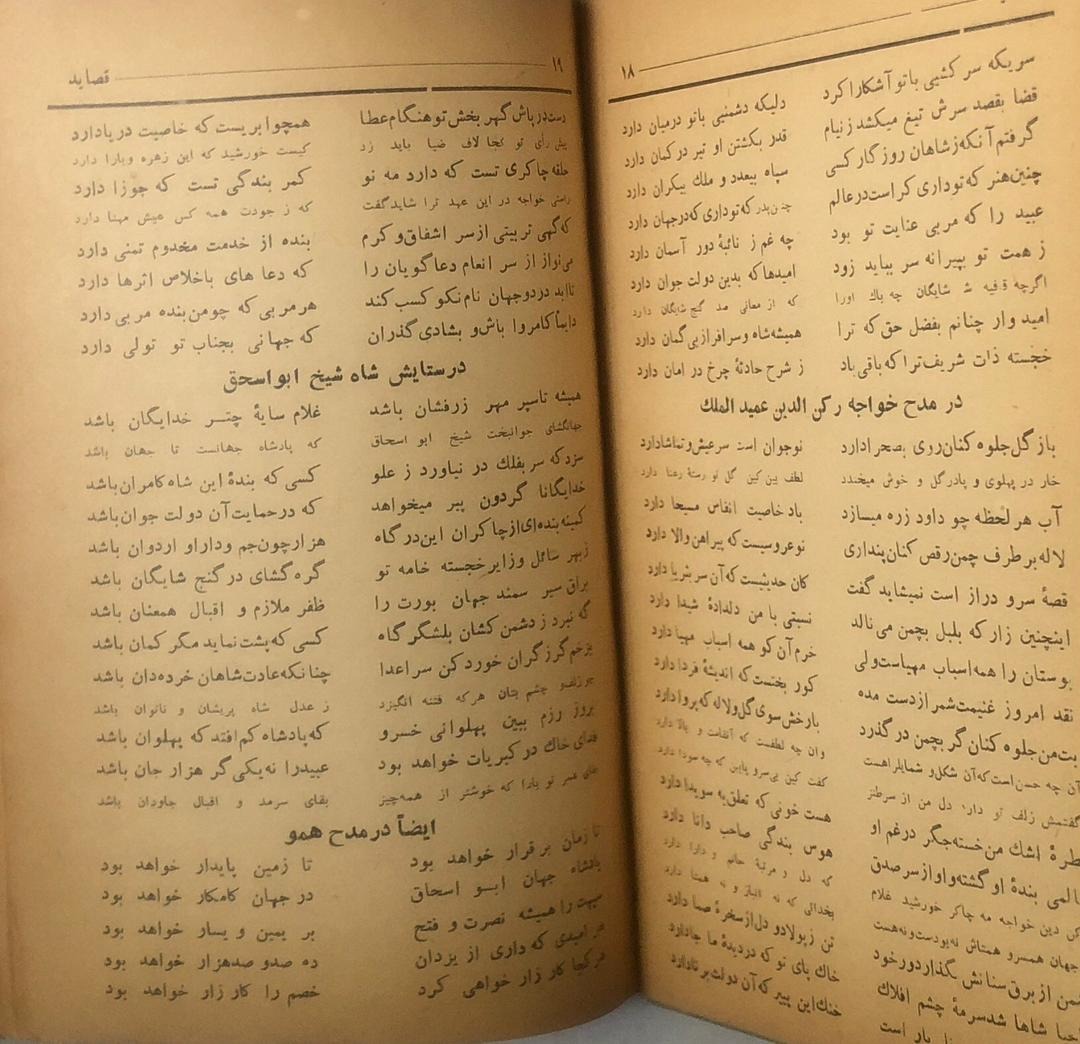 ۱۸
سریکه سر کشیی باتو آشکارا کرد دلیکه دشمنیی باتو درمیان دارد
قضا بقصد سرش تیغ میکشد ز نیام قدر بکشتن او تیر در کمان دارد
گرفتم آنکه ز شاهان روزگار کسی سپاه بیعدد و ملك بیکران دارد
چنین هنر که تو داری کراست در عالم چنین پدر که تو داری که در جهان دارد
عبید را که مربی عنایت تو بود چه غم ز نائبهٔ دور آسمان دارد
ز همت تو بپیرانه سر بیابد زود امیدها که بدین دولت جوان دارد
اگرچه قافیه شایگان چه باك اورا که از معانی صد گنج شایگان دارد
امید وار چنانم بفضل حق که ترا همیشه شاه و سرافراز بی گمان دارد
خجسته ذات شریف ترا که باقی باد ز شرح حادثهٔ چرخ در امان دارد
در مدح خواجه رکن الدین عمید الملك
باز گل جلوه کنان روی بصحرا دارد نوجوان است سر عیش و تماشا دارد
خار در پهلوی و پادر گل و خوش میخندد لطف بین کین گل نو رستهٔ رعنا دارد
آب هر لحظه چو داود زره میسازد باد خاصیت انفاس مسیحا دارد
لاله بر طرف چمن رقص کنان پنداری نو عروسیست که پیراهن والا دارد
قصهٔ سرو دراز است نمیشاید گفت کان حدیثیست که آن سر بثریا دارد
اینچنین زار که بلبل بچمن می نالد نسبتی با من دلدادهٔ شیدا دارد
بوستان را همه اسباب مهیاست ولی خرم آن کو همه اسباب مهیا دارد
نقد امروز غنیمت شمر از دست مده کور بختست که اندیشهٔ فردا دارد
بت من جلوه کنان گر بچمن در گذرد بارخش سوی گل و لاله که پروا دارد
آن چه حسن است که آن شکل و شمایل راهست وان چه لطفست که آنقامت و بالا دارد
گفتمش زلف تو دارد دل من از سر طنز گفت کین بی سرو پابین که چه سودا دارد
اشك من خسته جگر درغم او هست خونی که تعلق به سویدا دارد
بندهٔ او گشته و او از سر صدق هوس بندگی صاحب دانا دارد
دین خواجه مه چاکر خورشید غلام که دل و مرتبهٔ حاتم و دارا دارد
جهان همسرو همتاش نه بودست و نه هست بخدائی که نه انباز و نه همتا دارد
از برق سنانش بگذارد ور خود تن ز پولاد و دل از سخرهٔ صما دارد
شاها شد سرمهٔ چشم افلاك خاك پای تو که در دیدهٔ ما جا دارد
یار است خنك این پیر که آن دولت برنا دارد
۱۹ قصاید
دست در پاش گهر بخش تو هنگام عطا همچو ابریست که خاصیت دریا دارد
پیش رأی تو کجا لاف ضیا باید زد کیست خورشید که این زهره ویارا دارد
حلقه چاکری تست که دارد مه نو کمر بندگی تست که جوزا دارد
راستی خواجه در این عهد ترا شاید گفت که ز جودت همه کس عیش مهنا دارد
که گهی تربیتی از سر اشفاق و کرم بنده از خدمت مخدوم تمنی دارد
می نواز از سر انعام دعا گویان را که دعا های باخلاص اثرها دارد
تا ابد در دوجهان نام نکو کسب کند هر مربی که چو من بنده مربی دارد
دایماً کامروا باش و بشادی گذران که جهانی بجناب تو تولی دارد
در ستایش شاه شیخ ابواسحق
همیشه تا سپر مهر زرفشان باشد غلام سایهٔ چتر خدایگان باشد
جهانگشای جوانبخت شیخ ابو اسحاق که پادشاه جهانست تا جهان باشد
سزد که سر بفلك در نیاورد ز علو کسی که بندهٔ این شاه کامران باشد
خدایگانا گردون پیر میخواهد که در حمایت آن دولت جوان باشد
کمینه بنده ای از چاکران این در گاه هزار چون جم و دارا و اردوان باشد
زبهر سائل و زایر خجسته خامه تو گره گشای در گنج شایگان باشد
براق سیر سمند جهان بورت را ظفر ملازم و اقبال همعنان باشد
گه نبرد ز دشمن کشان بلشگر گاه کسی که پشت نماید مگر کمان باشد
بزخم گرز گران خورد کن سر اعدا چنانکه عادت شاهان خرده دان باشد
چو زلف و چشم بتان هر که فتنه انگیزد ز عدل شاه پریشان و ناتوان باشد
بروز رزم ببین پهلوانی خسرو که پادشاه کم افتد که پهلوان باشد
فدای خاك در کبریات خواهد بود عبید را نه یکی گر هزار جان باشد
بقای عمر تو بادا که خوشتر از همه چیز بقای سرمد و اقبال جاودان باشد
ایضاً در مدح همو
تا زمان بر قرار خواهد بود تا زمین پایدار خواهد بود
پادشاه جهان ابو اسحاق در جهان کامکار خواهد بود
را همیشه نصرت و فتح بر یمین و یسار خواهد بود
هر امیدی که داری از یزدان ده صدو صد هزار خواهد بود
هر کجا کار زار خواهی کرد خصم را کار زار خواهد بود